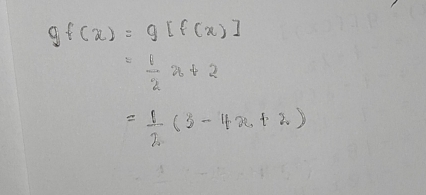 gf(x) = g[f(x)]
= 1/2 x + 2
= 1/2 (3 - 4x + 2)